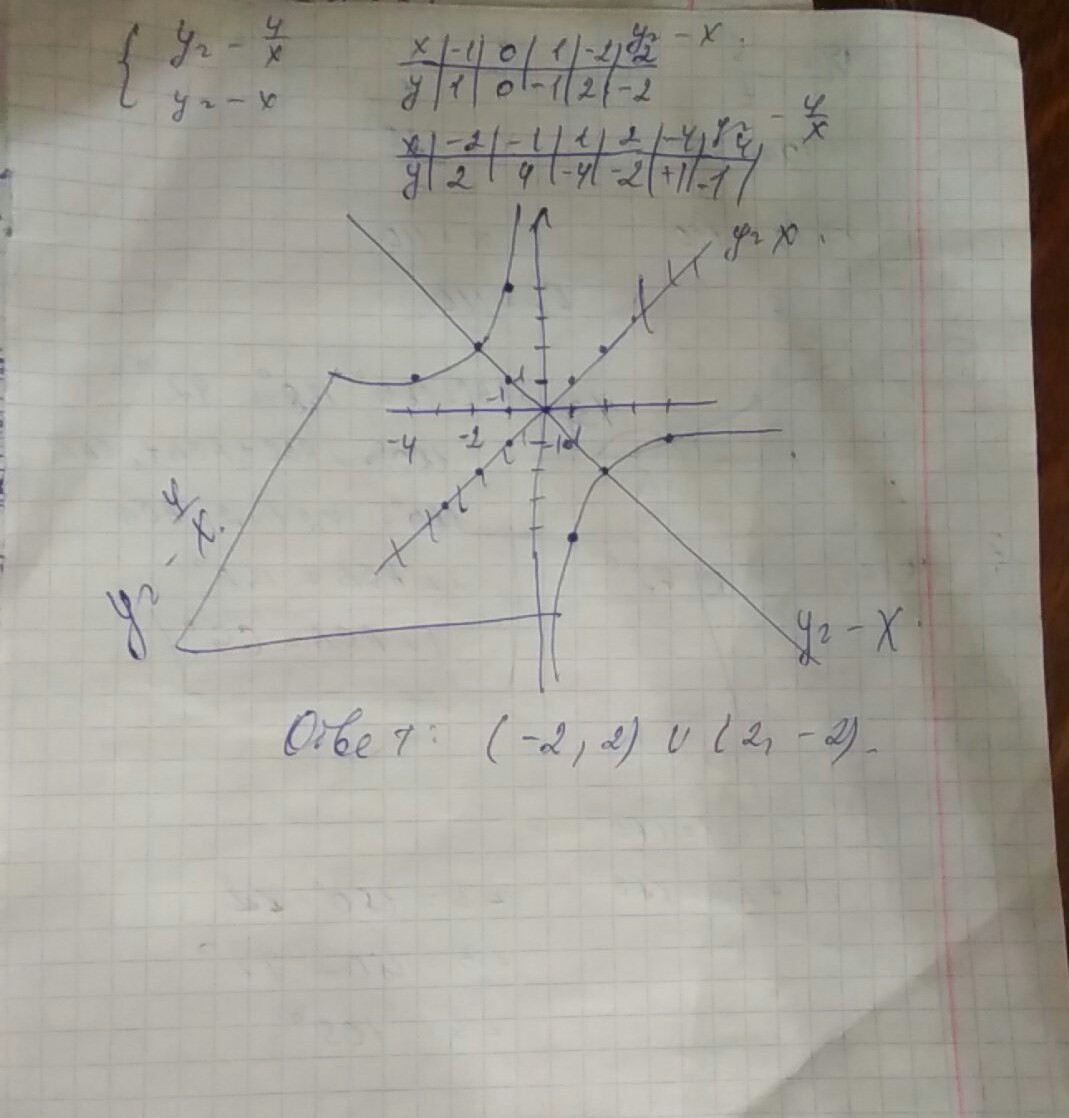 { y = - 4/x
y = - x
y = - x.
x | -1 | 0 | 1 | -2 | 2
y | 1 | 0 | -1 | 2 | -2
y = - 4/x
x | -2 | -1 | 1 | 2 | -4 | 4
y | 2 | 4 | -4 | -2 | +1 | -1 |
y = x.
1
-1
-4 -2 -1 1
y = - 4/x.
y = - x
Ответ: (-2, 2) ∪ (2, -2).